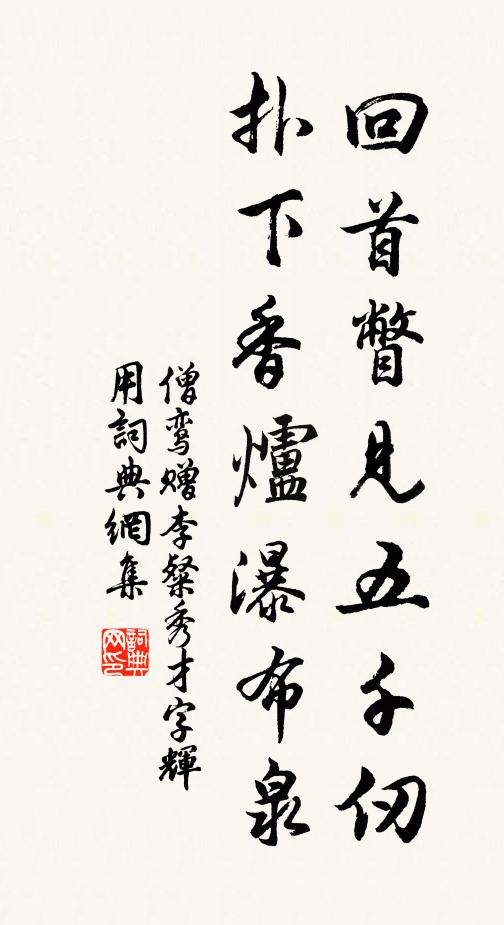 回首瞥見五千仞
扑下香爐瀑布泉
僧鸾赠李粲秀才字輝
用詞典網集
詞典网印